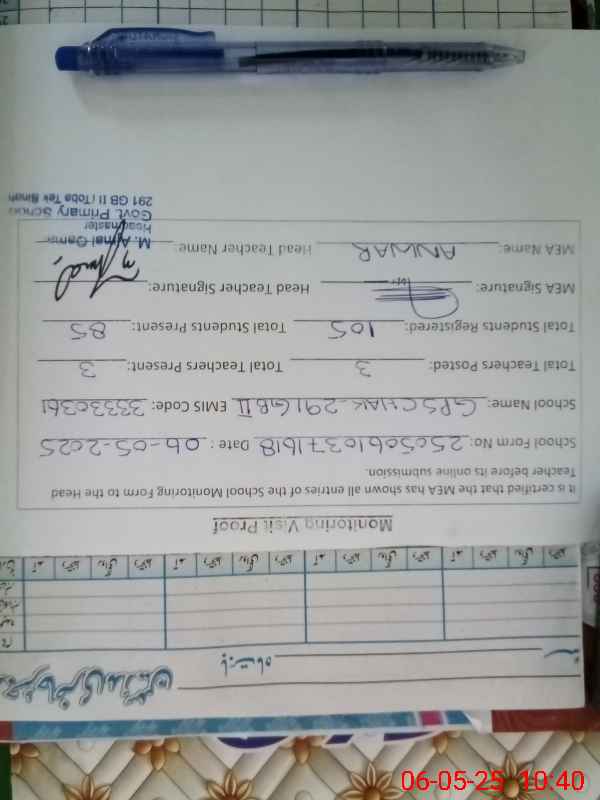 Monitoring Visit Proof
It is certified that the MEA has shown all entries of the School Monitoring Form to the Head
Teacher before its online submission.
School Form No: 25050610371618 Date : 06-05-2025
School Name: GPS CHAK-291GB II EMIS Code: 33330361
Total Teachers Posted: 3 Total Teachers Present: 3
Total Students Registered: 105 Total Students Present: 85
MEA Signature: Head Teacher Signature:
MEA Name: ANWAR Head Teacher Name:
Headmaster
Govt. Primary School
291 GB II (Toba Tek Singh
06-05-25 10:40